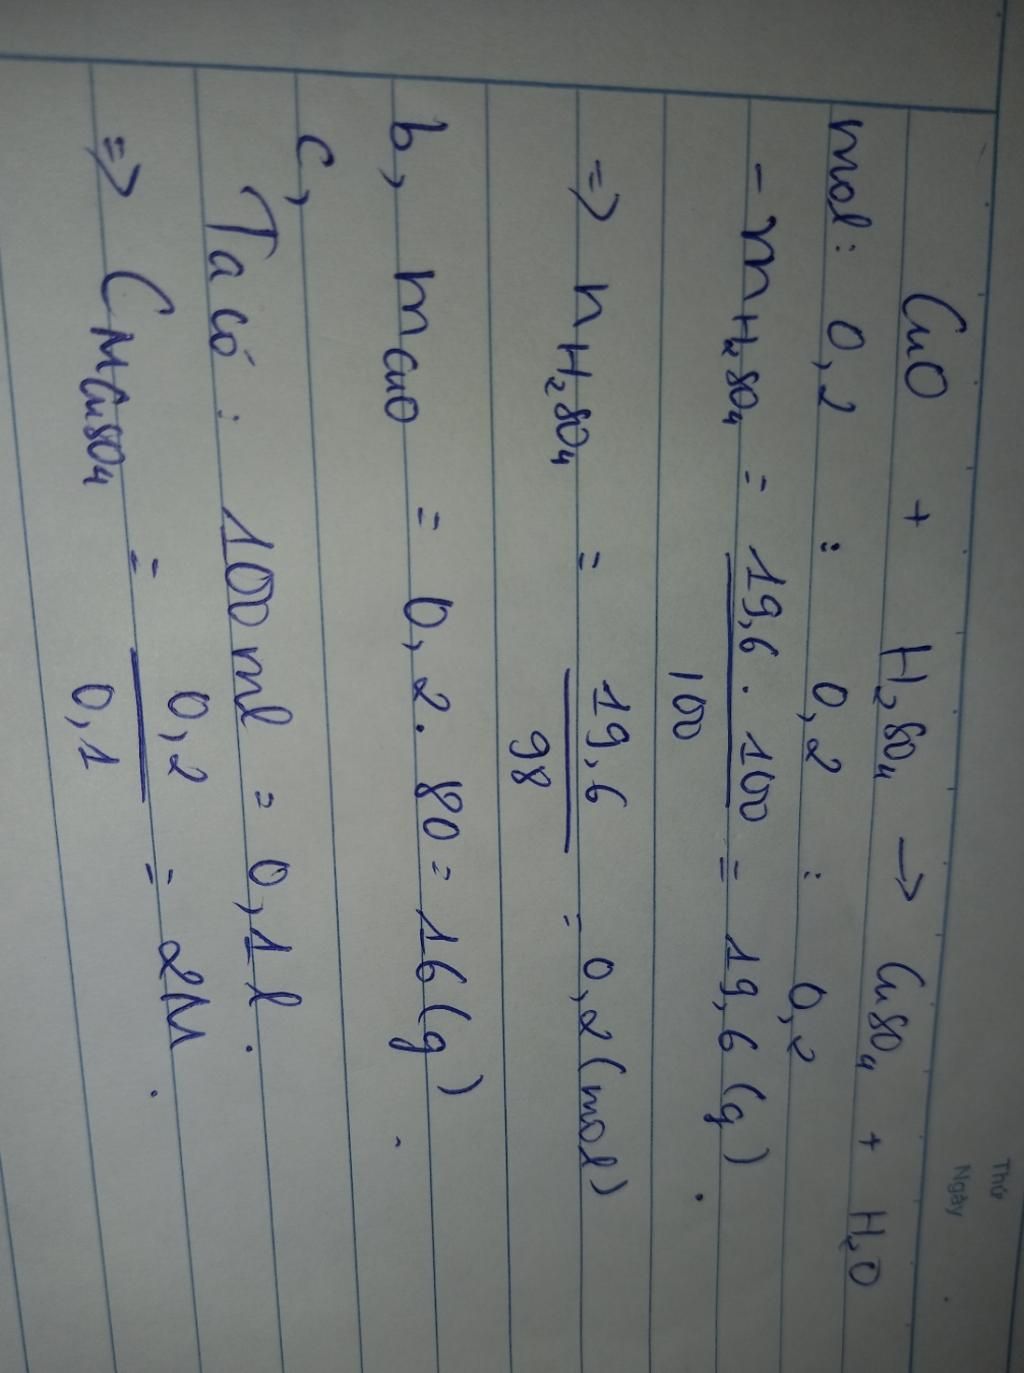 Thứ
Ngày
CuO + H₂SO₄ → CuSO₄ + H₂O
mol: 0,2 : 0,2 : 0,2
- mH₂SO₄ = 19,6 . 100 / 100 = 19,6 (g)
=> nH₂SO₄ = 19,6 / 98 = 0,2 (mol)
b, mCuO = 0,2 . 80 = 16 (g)
c,
Ta có : 100 ml = 0,1 l.
=> CMCuSO₄ = 0,2 / 0,1 = 2M.